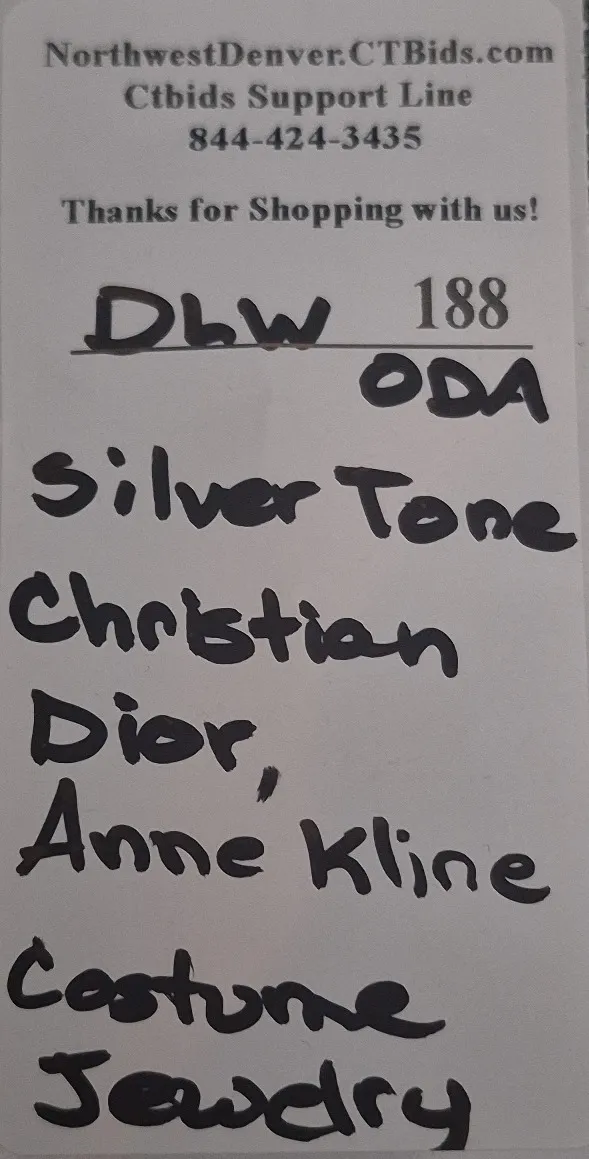 NorthwestDenver.CTBids.com
Ctbids Support Line
844-424-3435
Thanks for Shopping with us!
DLW 188
ODA
Silver Tone
Christian
Dior,
Anne Kline
Costume
Jewdry